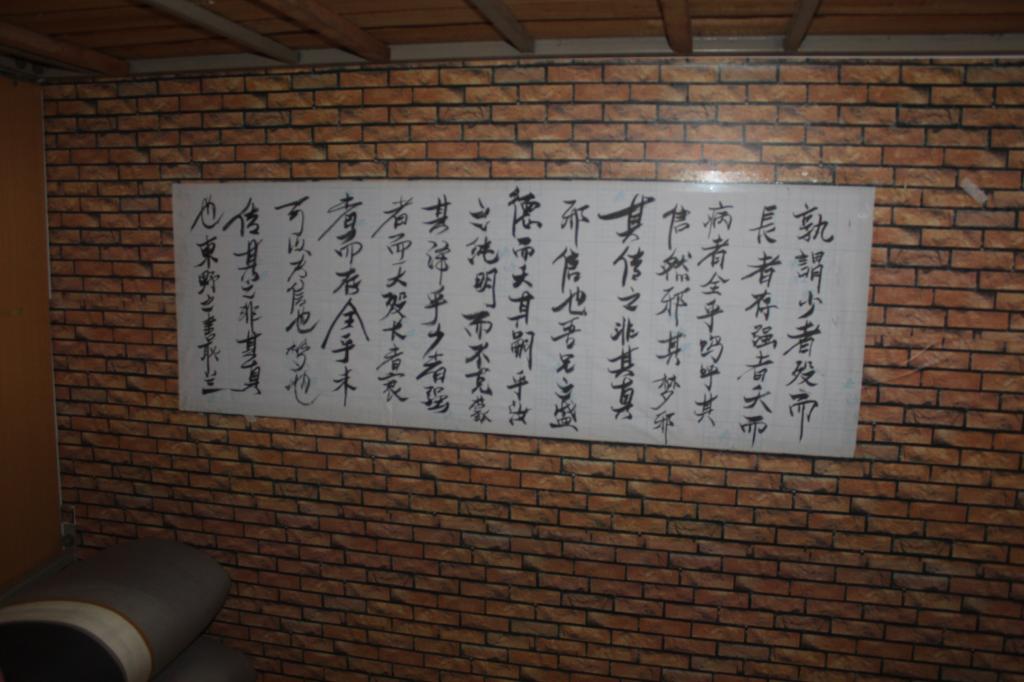 孰謂少者殁而
長者存强者夭而
病者全乎呜呼其
信然邪其梦邪
其传之非其真
邪信也吾兄之盛
德而夭其嗣乎汝
之纯明而不克蒙
其泽乎少者强
者而夭殁长者衰
者而存全乎未
可以为信也梦也
传其之非其真
也東野之書耿兰